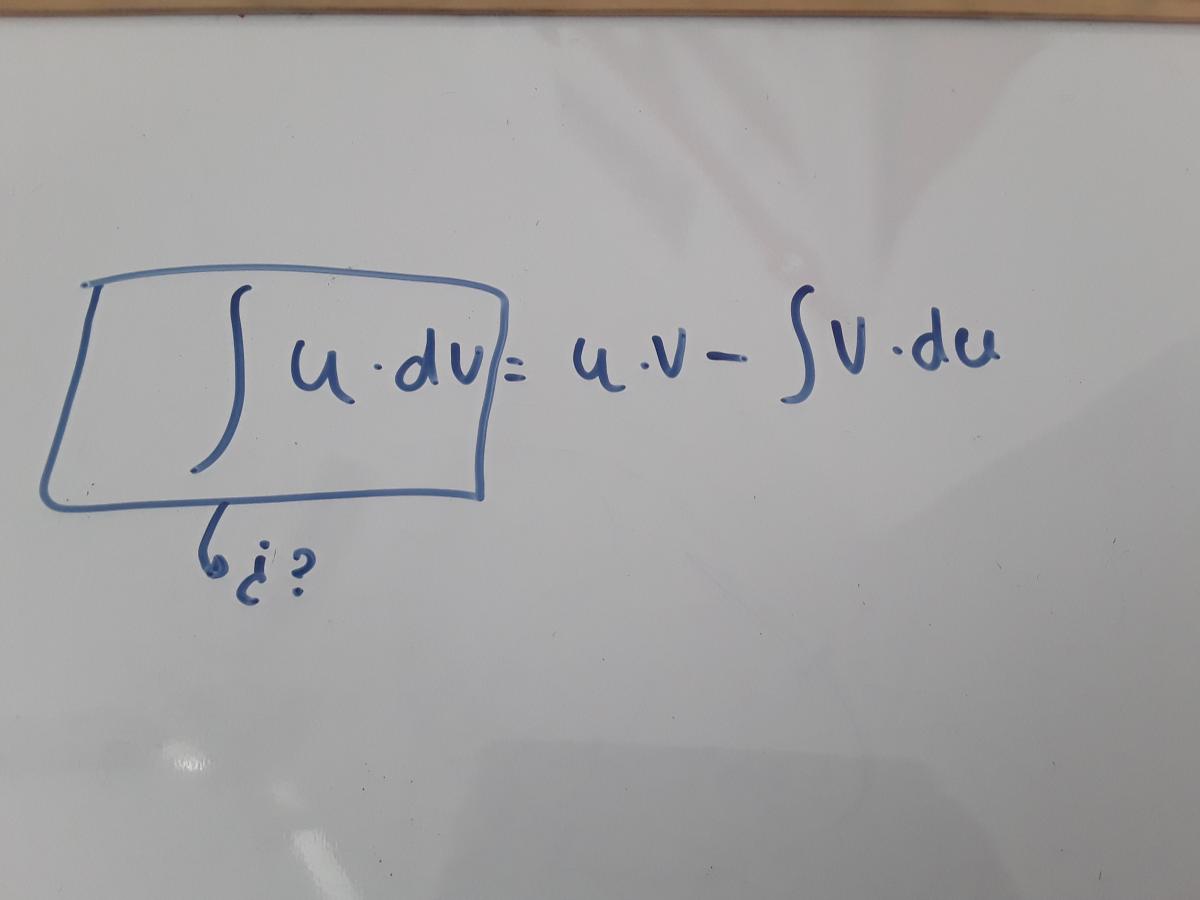 ∫ u · dv = u · v - ∫ v · du
¿?